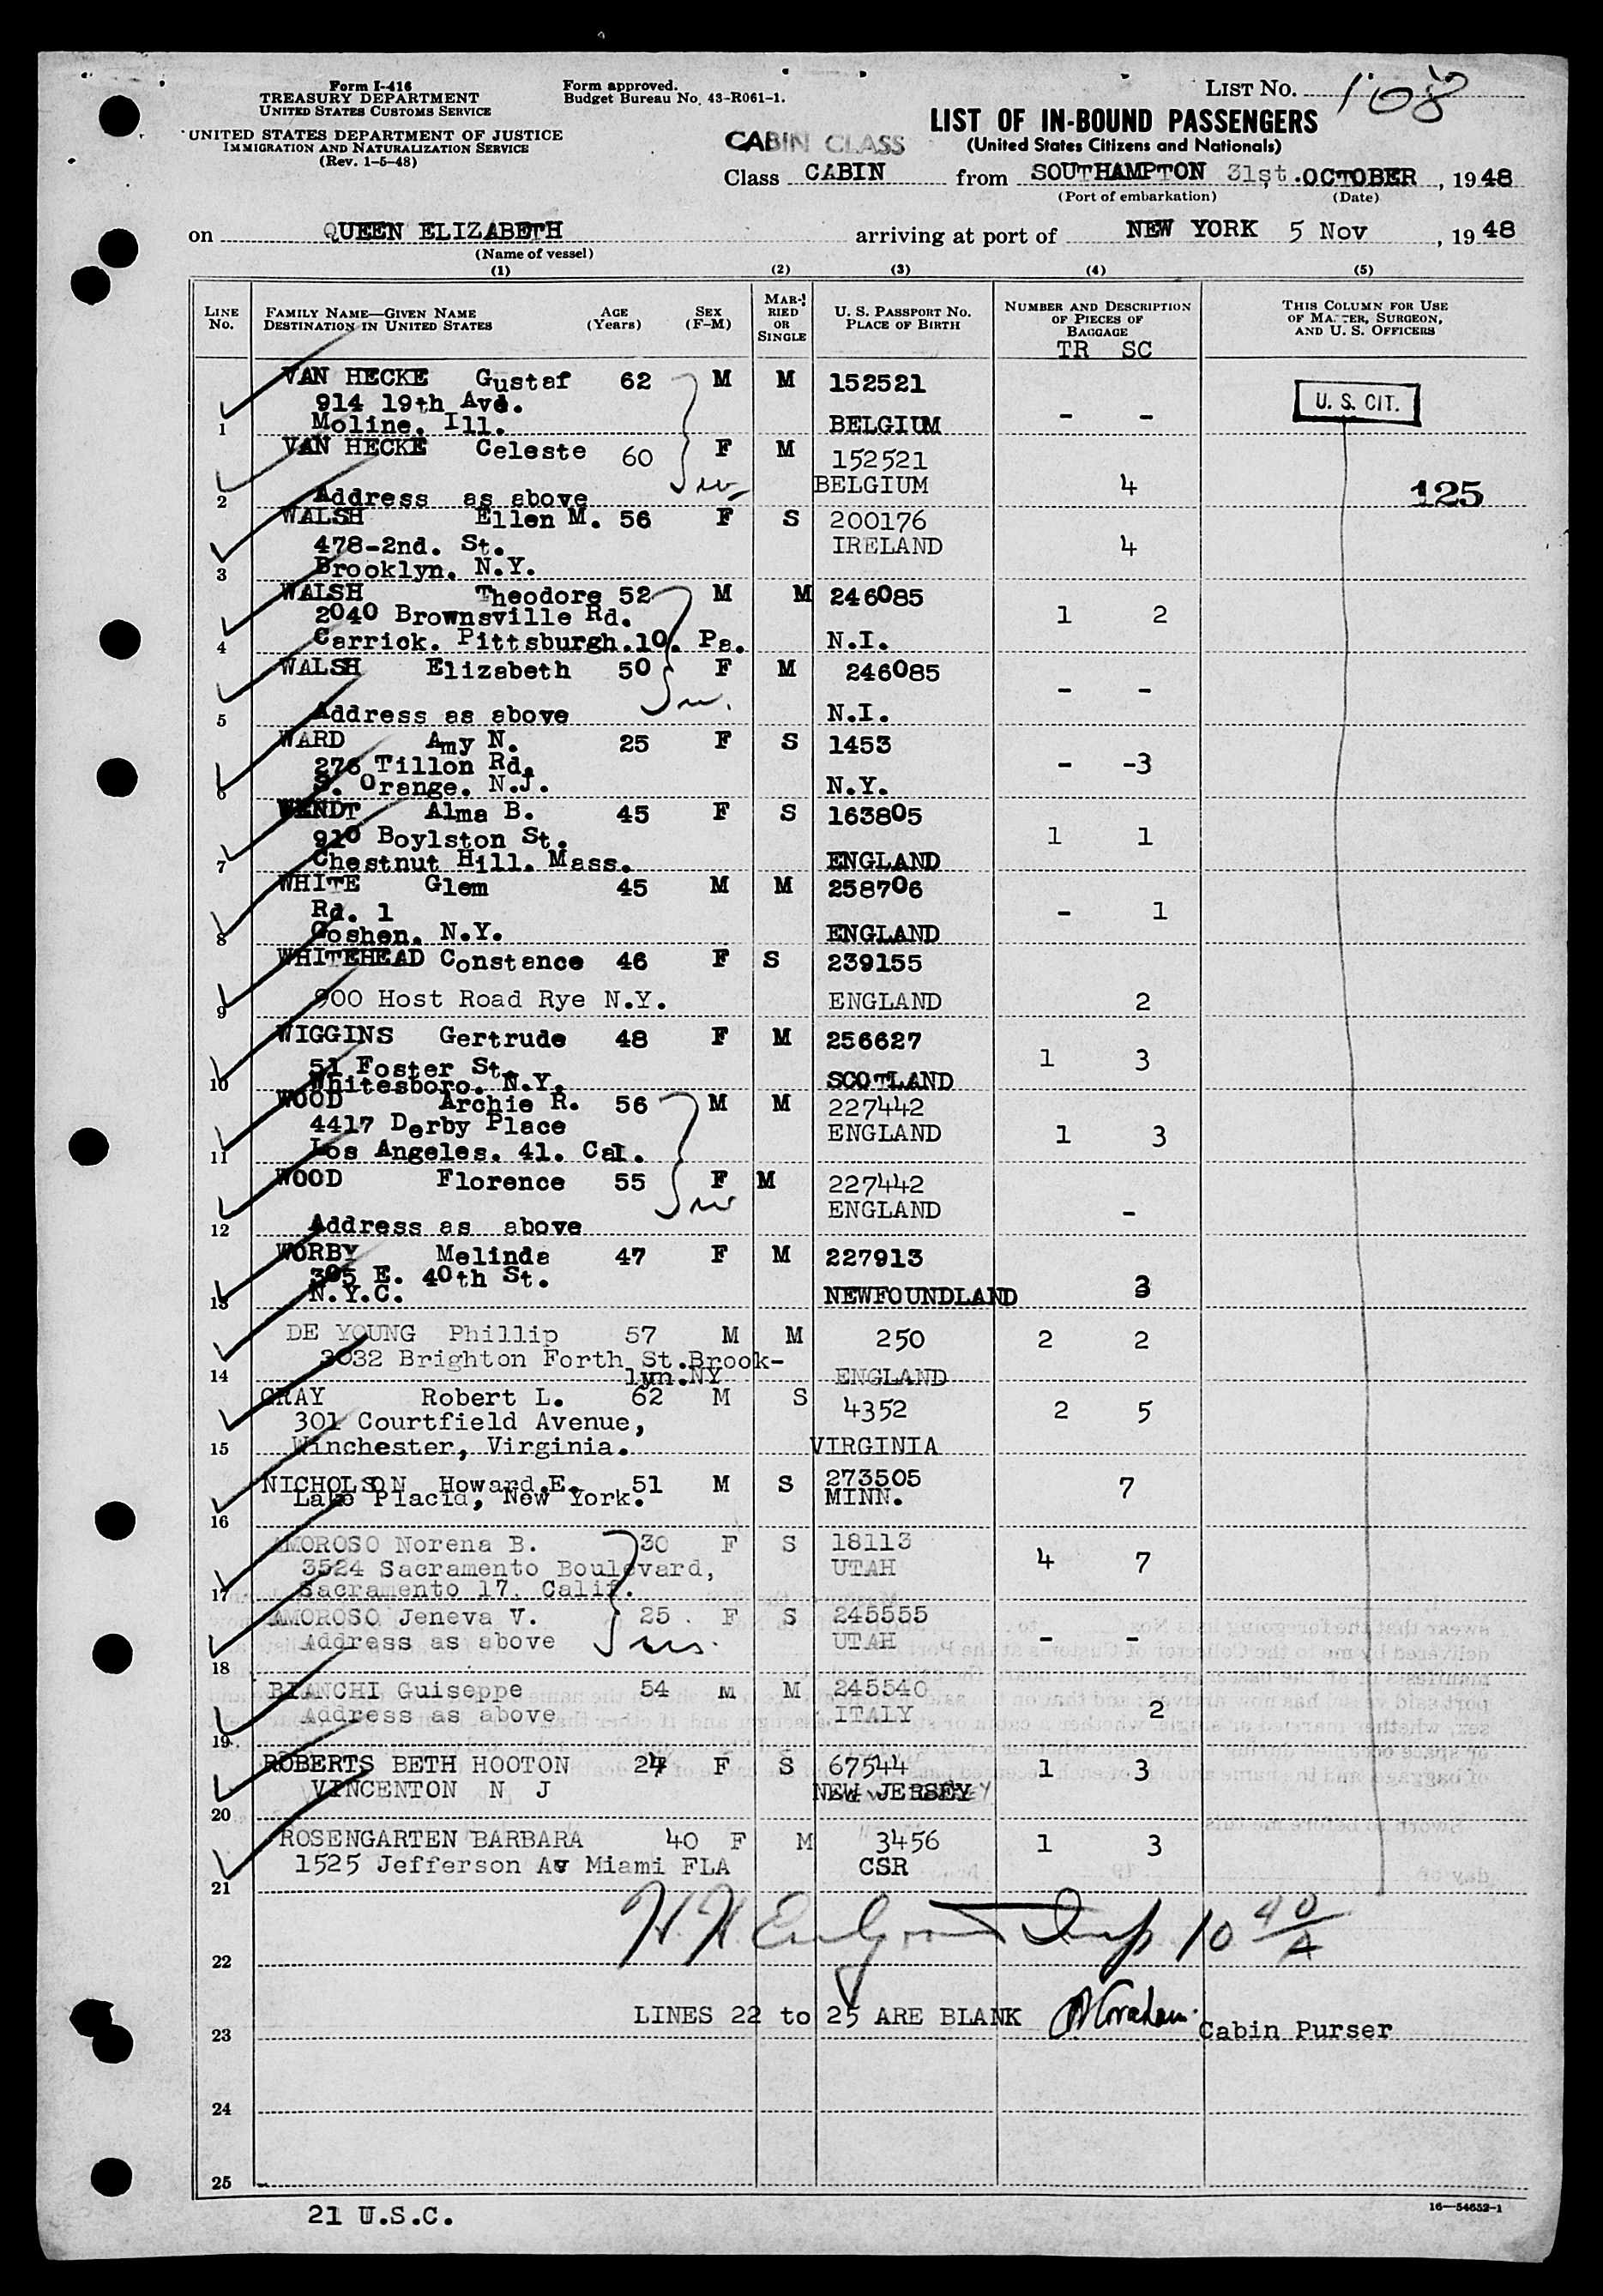 Form I-416
TREASURY DEPARTMENT
UNITED STATES CUSTOMS SERVICE
UNITED STATES DEPARTMENT OF JUSTICE
IMMIGRATION AND NATURALIZATION SERVICE
(Rev. 1-5-48)
Form approved.
Budget Bureau No. 43-R061-1.
LIST NO. 108
LIST OF IN-BOUND PASSENGERS
(United States Citizens and Nationals)
CABIN CLASS
Class CABIN from SOUTHAMPTON 31st. OCTOBER, 1948
(Port of embarkation) (Date)
on QUEEN ELIZABETH arriving at port of NEW YORK 5 Nov, 1948
(Name of vessel)
(1) (2) (3) (4) (5)
LINE No. FAMILY NAME—GIVEN NAME DESTINATION IN UNITED STATES AGE (Years) SEX (F-M) MARRIED OR SINGLE U. S. PASSPORT NO. PLACE OF BIRTH NUMBER AND DESCRIPTION OF PIECES OF BAGGAGE THIS COLUMN FOR USE OF MASTER, SURGEON, AND U. S. OFFICERS
TR SC
VAN HECKE Gustaf 62 M M 152521
914 19th Ave. - - U. S. CIT.
1 Moline. Ill. BELGIUM
VAN HECKE Celeste 60 F M 152521
BELGIUM 4 125
2 Address as above
WALSH Ellen M. 56 F S 200176
478-2nd. St. IRELAND 4
3 Brooklyn. N.Y.
WALSH Theodore 52 M M 246085
2040 Brownsville Rd. 1 2
4 Carrick. Pittsburgh.10. Pa. N.I.
WALSH Elizabeth 50 F M 246085
- -
5 Address as above N.I.
WARD Amy N. 25 F S 1453
276 Tillon Rd. - -3
6 S. Orange. N.J. N.Y.
WENDT Alma B. 45 F S 163805
910 Boylston St. 1 1
7 Chestnut Hill. Mass. ENGLAND
WHITE Glem 45 M M 258706
Rd. 1 - 1
8 Goshen. N.Y. ENGLAND
WHITEHEAD Constance 46 F S 239155
9 900 Host Road Rye N.Y. ENGLAND 2
WIGGINS Gertrude 48 F M 256627
51 Foster St. 1 3
10 Whitesboro. N.Y. SCOTLAND
WOOD Archie R. 56 M M 227442
4417 Derby Place ENGLAND 1 3
11 Los Angeles. 41. Cal.
WOOD Florence 55 F M 227442
ENGLAND -
12 Address as above
WORBY Melinda 47 F M 227913
305 E. 40th St. 3
13 N.Y.C. NEWFOUNDLAND
DE YOUNG Phillip 57 M M 250 2 2
3032 Brighton Forth St.Brook-
14 lyn.NY ENGLAND
GRAY Robert L. 62 M S 4352 2 5
301 Courtfield Avenue,
15 Winchester, Virginia. VIRGINIA
NICHOLSON Howard.E. 51 M S 273505 7
Lake Placid, New York. MINN.
16
AMOROSO Norena B. 30 F S 18113
3524 Sacramento Boulevard, UTAH 4 7
17 Sacramento 17. Calif.
AMOROSO Jeneva V. 25 F S 245555
Address as above UTAH - -
18
BIANCHI Guiseppe 54 M M 245540
Address as above ITALY 2
19
ROBERTS BETH HOOTON 24 F S 67544 1 3
VINCENTON N J NEW JERSEY
20
ROSENGARTEN BARBARA 40 F M 3456 1 3
1525 Jefferson Av Miami FLA CSR
21
Insp 10 40/A
22
LINES 22 to 25 ARE BLANK Cabin Purser
23
24
25
21 U.S.C.
16—54652-1